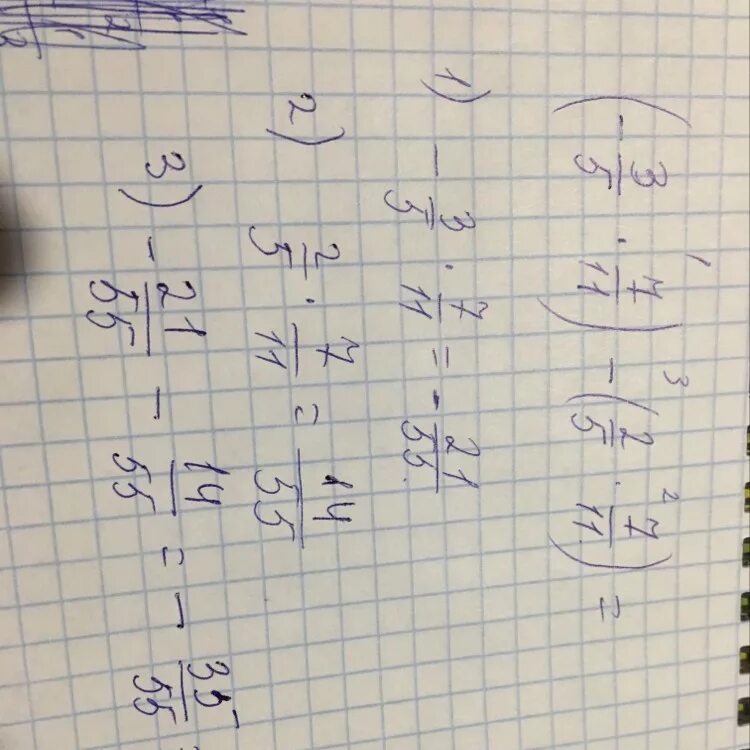 (- 3/5 · 7/11) - (2/5 · 7/11) =
1 3 2
1) - 3/5 · 7/11 = - 21/55
2) 2/5 · 7/11 = 14/55
3) - 21/55 - 14/55 = - 35/55